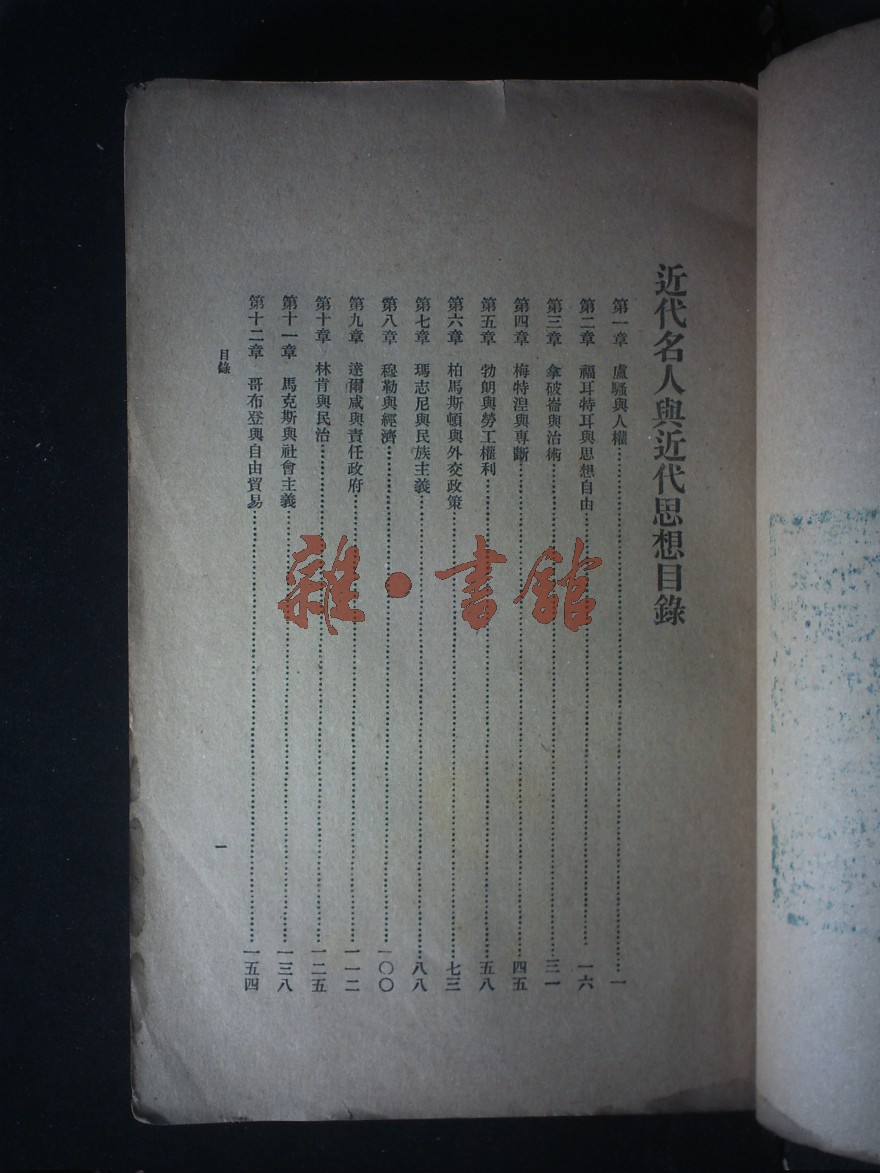 近代名人與近代思想目錄
第一章 盧騷與人權 一
第二章 福耳特耳與思想自由 一六
第三章 拿破崙與治術 三一
第四章 梅特湼與專斷 四五
第五章 勃朗與勞工權利 五八
第六章 柏馬斯頓與外交政策 七三
第七章 瑪志尼與民族主義 八八
第八章 穆勒與經濟 一〇〇
第九章 達爾咸與責任政府 一一二
第十章 林肯與民治 一二五
第十一章 馬克斯與社會主義 一三八
第十二章 哥布登與自由貿易 一五四
目錄 一
雜·書館